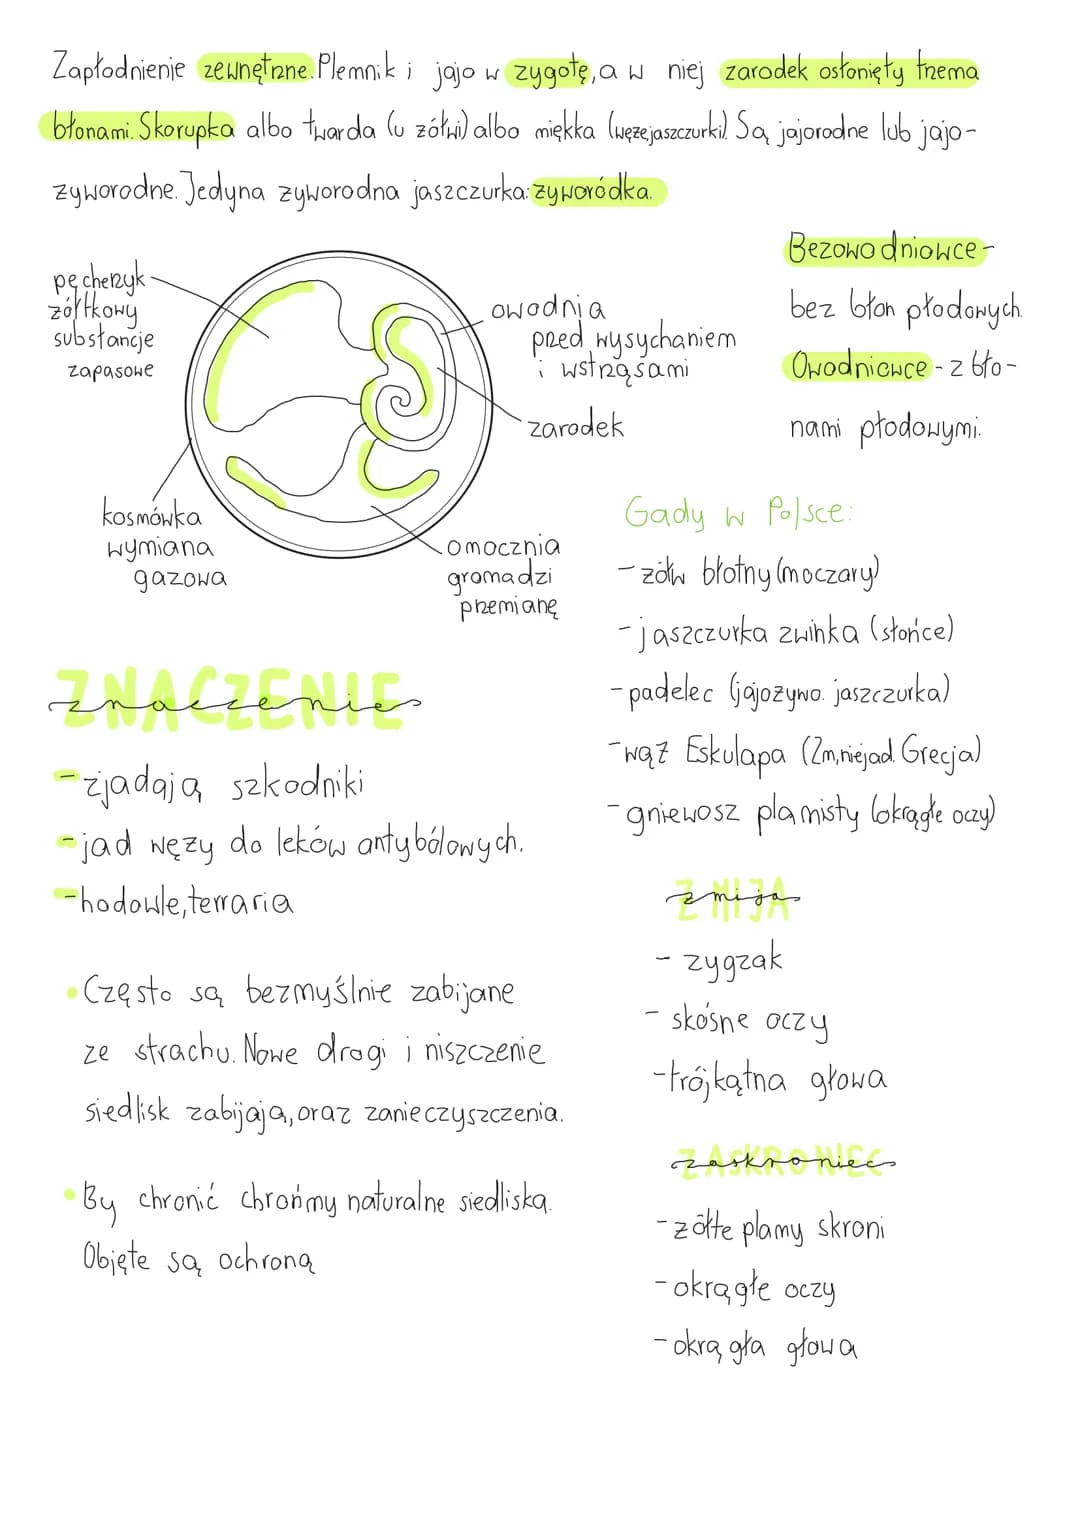 Zapłodnienie zewnętrzne. Plemnik i jajo w zygotę, a w niej zarodek osłonięty trzema
błonami. Skorupka albo twarda (u żółwi) albo miękka (węże, jaszczurki). Są jajorodne lub jajo-
żyworodne. Jedyna żyworodna jaszczurka: żyworódka.
pęcherzyk
żółtkowy
substancje
zapasowe
owodnia
przed wysychaniem
i wstrząsami
zarodek
kosmówka
wymiana
gazowa
omocznia
gromadzi
przemianę
Bezowodniowce -
bez błon płodowych.
Owodniowce - z bło-
nami płodowymi.
Gady w Polsce:
- żółw błotny (moczary)
- jaszczurka zwinka (słońce)
- padelec (jajożywo. jaszczurka)
- wąż Eskulapa (2m, niejad. Grecja)
- gniewosz plamisty (okrągłe oczy)
ZNACZENIE
znaczenie
- zjadają szkodniki
- jad węży do leków antybólowych.
- hodowle, terraria
• Często są bezmyślnie zabijane
ze strachu. Nowe drogi i niszczenie
siedlisk zabijają, oraz zanieczyszczenia.
• By chronić chrońmy naturalne siedliska.
Objęte są ochroną
ŻMIJA
żmija
- zygzak
- skośne oczy
- trójkątna głowa
ZASKRONIEC
zaskroniec
- żółte plamy skroni
- okrągłe oczy
- okrągła głowa